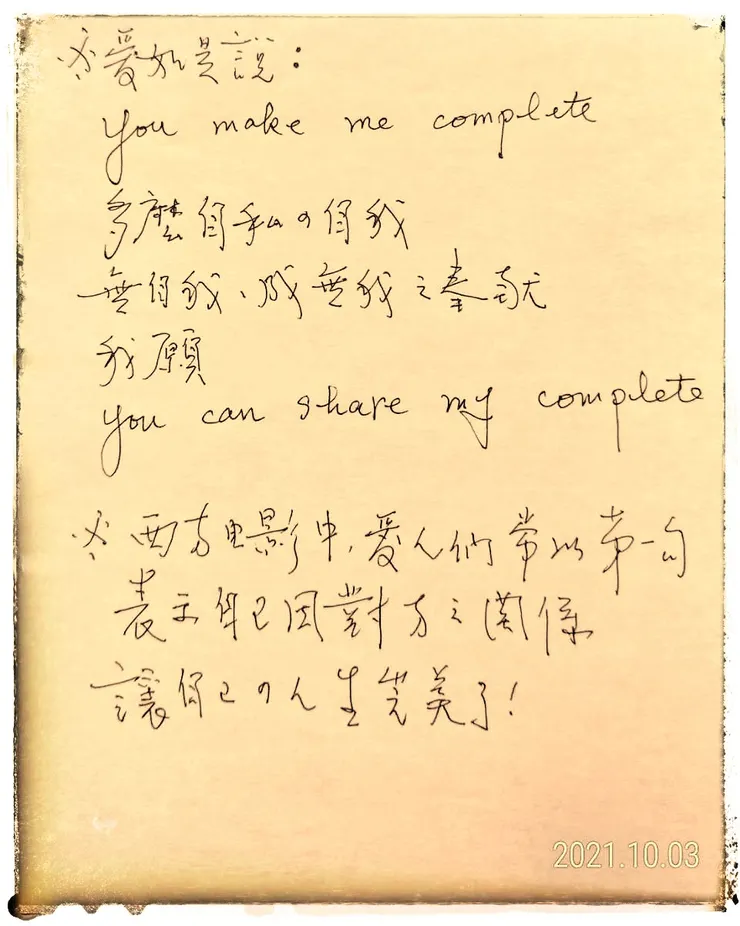 ※愛如是說：
you make me complete
多麼自私的自我
無自我、成無我之奉献
我願
you can share my complete
※西方电影中,愛人們常以第一句
表示自己因對方之関係
讓自己的人生完美了!
2021.10.03